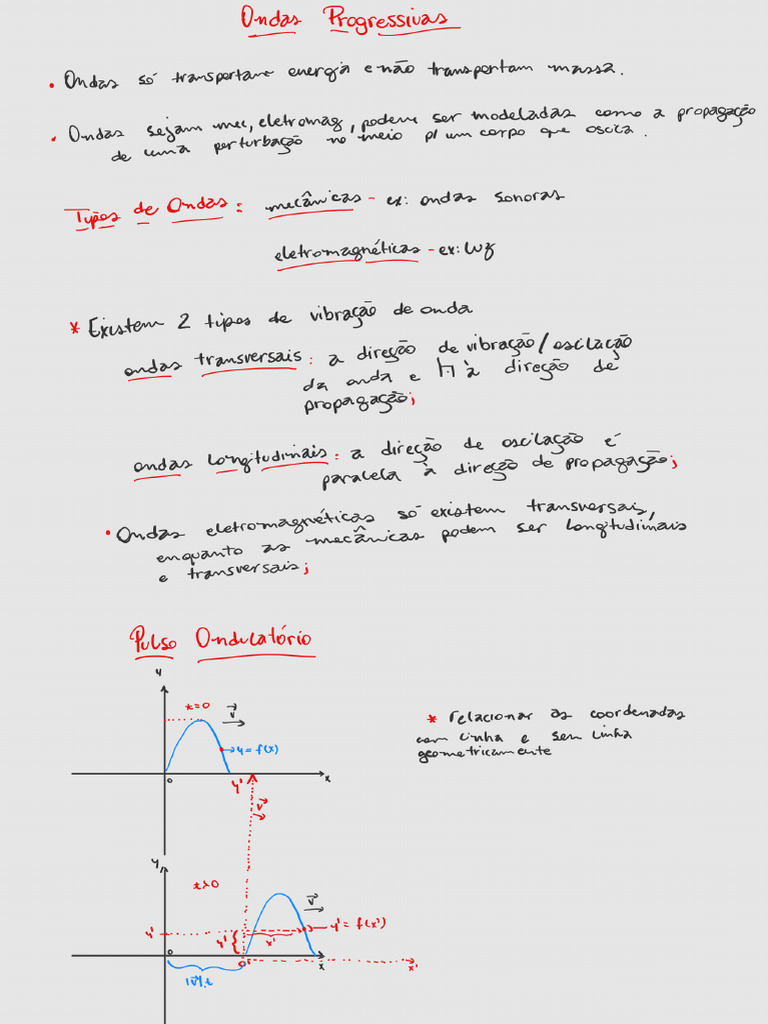 Ondas Progressivas
• Ondas só transportam energia e não transportam massa.
• Ondas sejam mec, eletromag, podem ser modeladas como a propagação
de uma perturbação no meio p/ um corpo que oscila.
Tipos de Ondas: mecânicas - ex: ondas sonoras
eletromagnéticas - ex: luz
* Existem 2 tipos de vibração de onda
ondas transversais: a direção de vibração/oscilação
da onda e à direção de
propagação;
ondas longitudinais: a direção de oscilação é
paralela à direção de propagação;
• Ondas eletromagnéticas só existem transversais,
enquanto as mecânicas podem ser longitudinais
e transversais;
Pulso Ondulatório
y
t=0
v
y=f(x)
* relacionar as coordenadas
com linha e sem linha
geometricamente
0
y'
x
v
y
t>0
v
y'
y'
x'
y'=f(x')
0
0'
x
x'
|v|.t